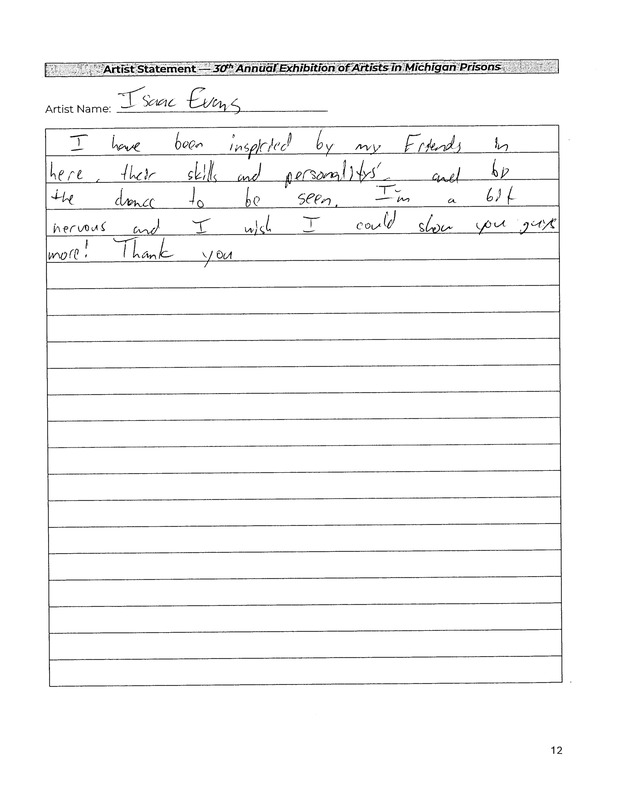 Artist Statement — 30th Annual Exhibition of Artists in Michigan Prisons
Artist Name: Isaac Evans
I have been inspired by my Friends in
here, their skills and personality's. and by
the chance to be seen. I'm a bit
nervous and I wish I could show you guys
more! Thank you
12